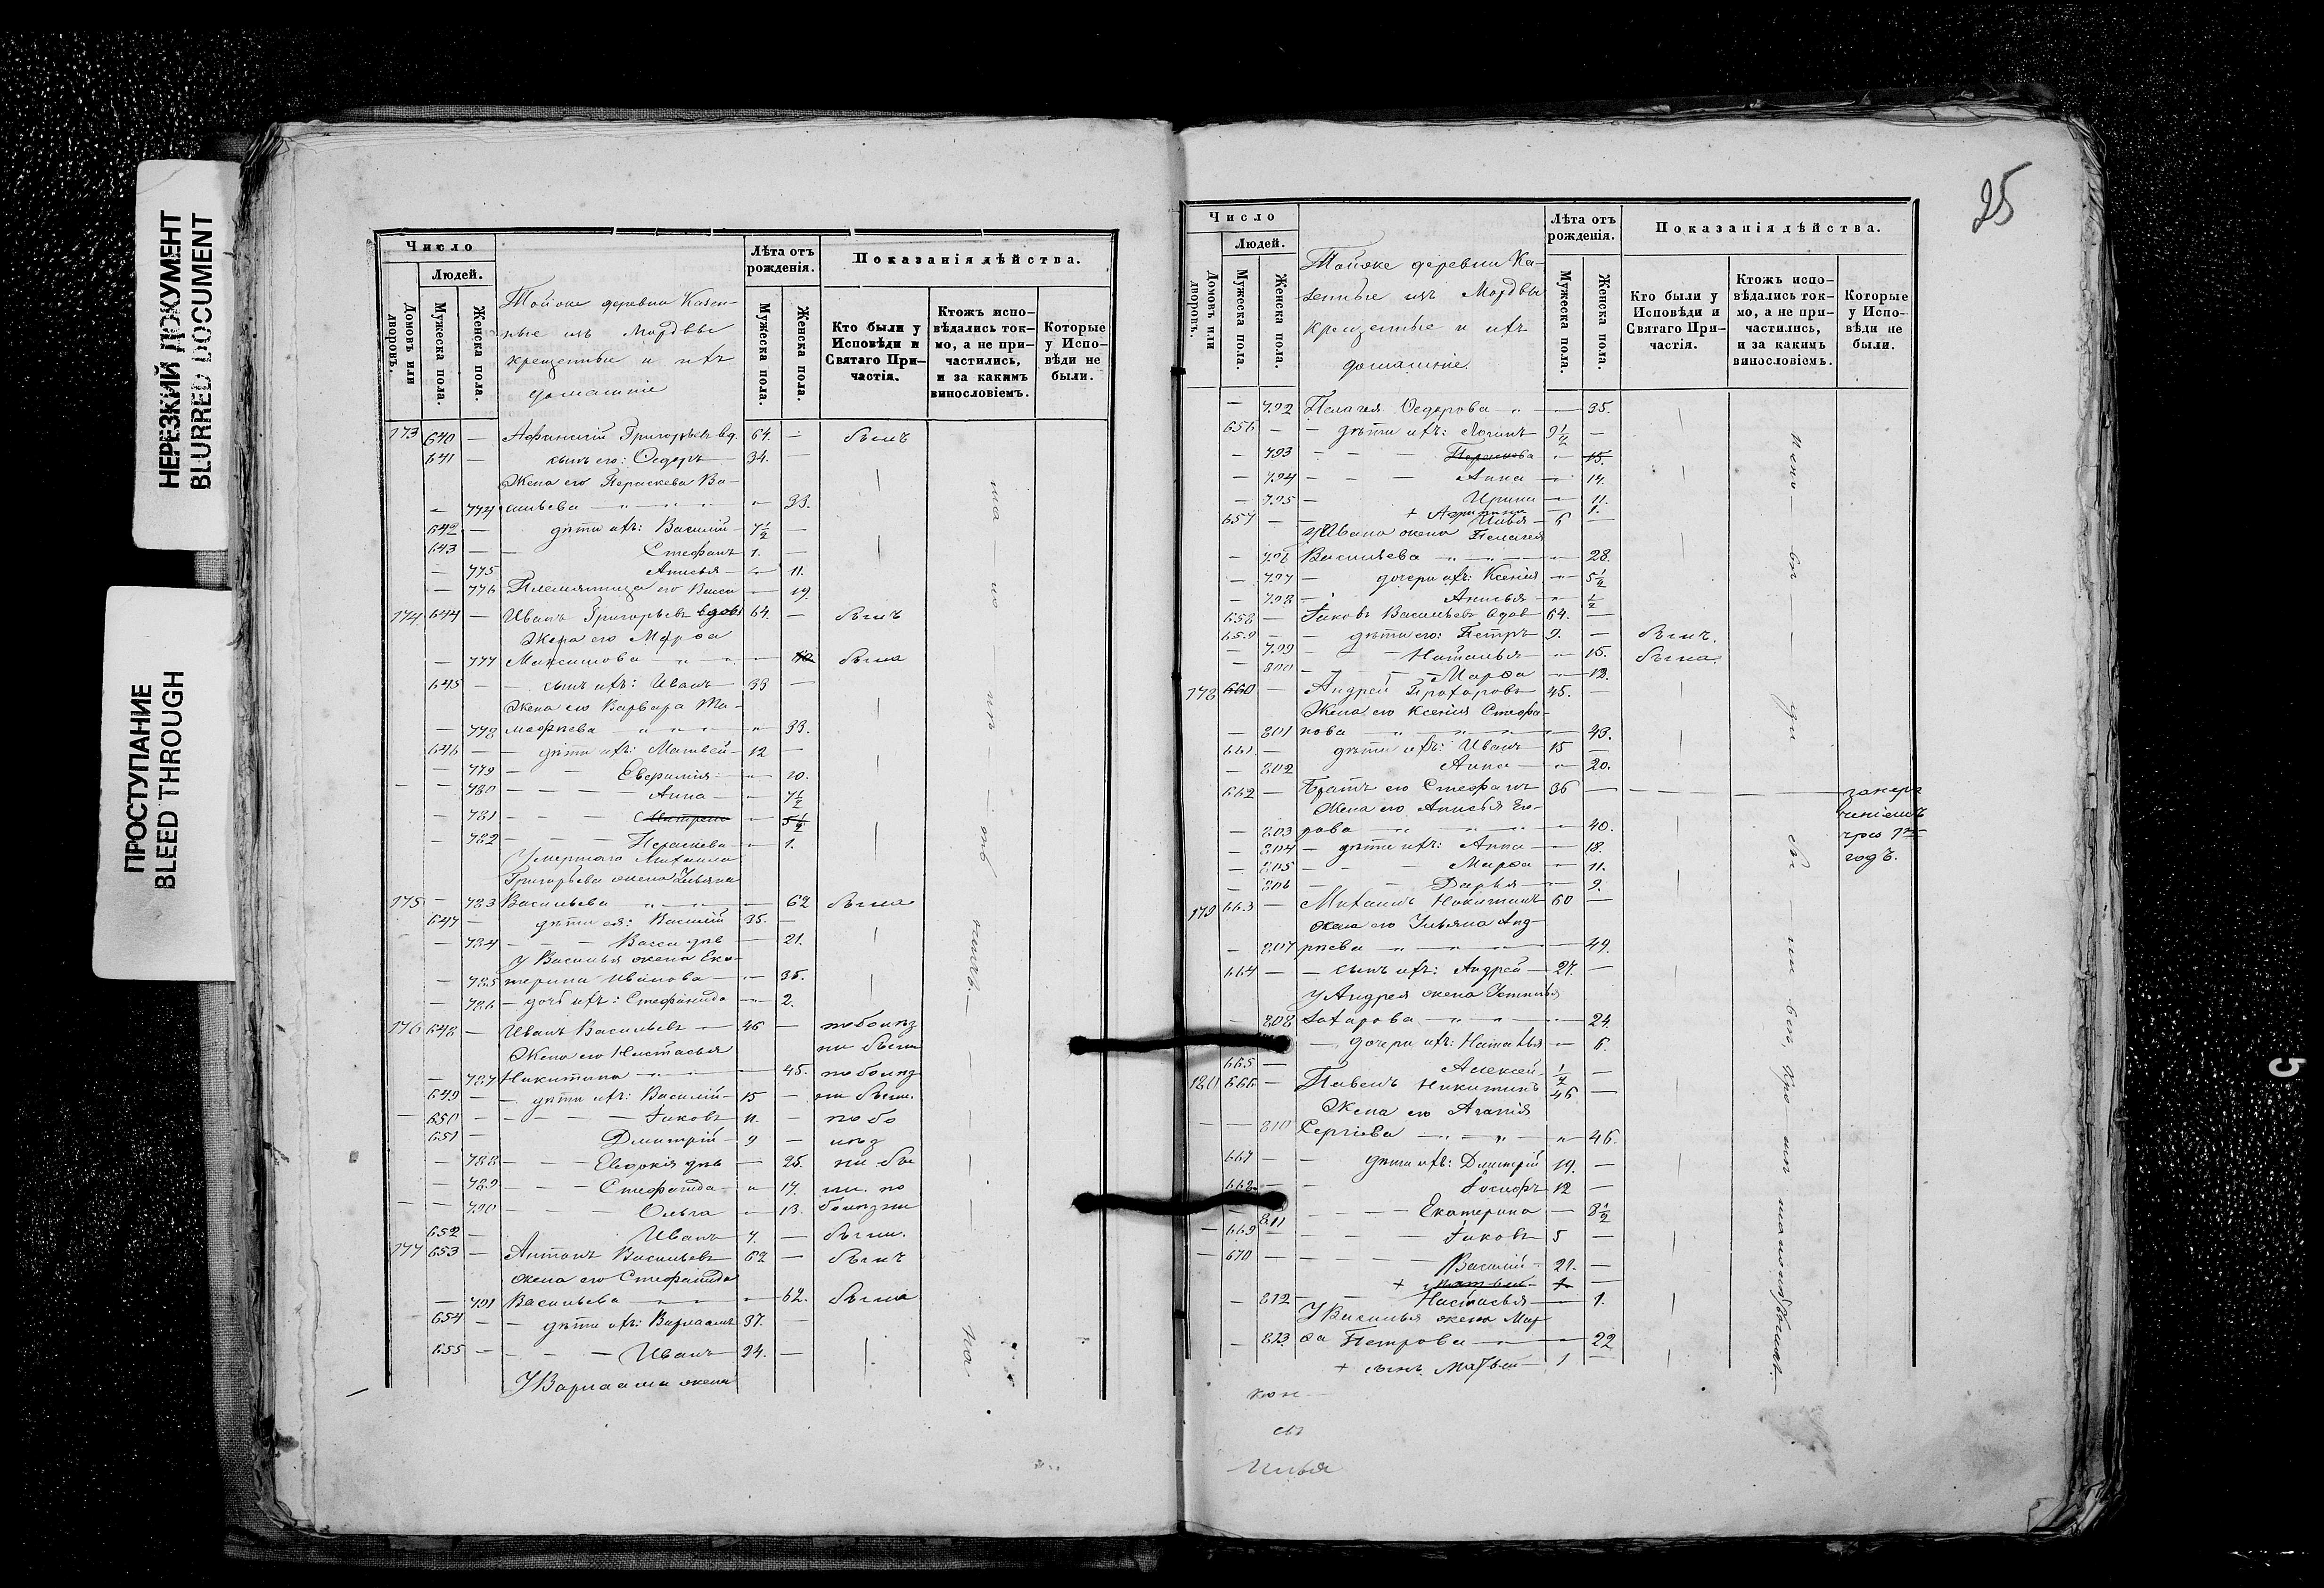 НЕРЕЗКИЙ ДОКУМЕНТ
BLURRED DOCUMENT
ПРОСТУПАНИЕ
BLEED THROUGH
Число
Людей.
Домовъ или дворовъ.
Мужеска пола.
Женска пола.
Тойже деревни Казен-
ные изъ Мордвы
крещенные и ихъ
домашніе
Лѣта отъ рожденія.
Мужеска пола.
Женска пола.
Показанія дѣйства.
Кто были у Исповѣди и Святаго При-частія.
Ктожъ испо-вѣдались ток-мо, а не при-частились, и за какимъ винословіемъ.
Которые у Испо-вѣди не были.
173 640 — Афанасій Григорьевъ вд. 64. — былъ
641 — сынъ его: Ѳедоръ 34. —
Жена его Параскева Ва-
— 774 сильева — 33.
642 — дѣти ихъ: Василій 7 1/2 —
643 — Стефанъ 1. —
— 775 Анисья — 11.
— 776 Племянница его — 19.
174 644 — Иванъ Григорьевъ вдовъ 64. — былъ
Жена его Марѳа
— 777 Максимова — была
645 — сынъ ихъ: Иванъ 33 —
Жена его Варвара Ма-
— 778 — 33.
646 — дѣти ихъ: Матвей 12 —
— 779 Евфимія — 10.
— 780 Анна — 7 1/2
— 781 — 5 1/2
— 782 Параскева — 1.
Умершаго Михаила
Григорьева жена Ульяна
175 — 783 Васильева — 62 была
647 — дѣти ея: Василій 35. —
— 784 дѣв — 21.
У Василья жена Ека-
— 785 терина Иванова — 35.
— 786 дочь ихъ: Стефанида — 2.
176 648 — Иванъ Васильевъ 46 — поболѣз
Жена его Настасья ни были
— 787 Никитина — 45. поболѣз
649 — дѣти ихъ: Василій 15 — ни были.
650 — Іаковъ 11. — по бо
651 — Дмитрій 9 — лѣз
— 788 Евдокія дѣв — 25. ни бы
— 789 Стефанида — 17. ли. по
— 790 Ольга — 13. болѣзни
652 — Иванъ 7. — были.
177 653 — Антонъ Васильевъ 62 — былъ
жена его Стефанида
— 791 Васильева — 62. была
654 — дѣти ихъ: Варлаамъ 37. —
655 — Иванъ 24. —
У Варлаама жена
25
Число
Людей.
Домовъ или дворовъ.
Мужеска пола.
Женска пола.
Тойже деревни Ка-
зенные изъ Мордвы
крещенные и ихъ
домашніе.
Лѣта отъ рожденія.
Мужеска пола.
Женска пола.
Показанія дѣйства.
Кто были у Исповѣди и Святаго При-частія.
Ктожъ испо-вѣдались ток-мо, а не при-частились, и за какимъ винословіемъ.
Которые у Испо-вѣди не были.
— 792 Пелагея Ѳедорова — 35.
656 — дѣти ихъ: Логинъ 9 1/2 —
— 793 — 15.
— 794 Анна — 14.
— 795 Ирина — 11.
+ — 1.
657 — Илья 6 —
У Ивана жена Пелагея
— 796 Васильева — 28.
— 797 дочери ихъ: Ксенія — 5 1/2
— 798 Анисья — 1/2
658 — Іаковъ Васильевъ вдов 64. —
659 — дѣти его: Петръ 9. — былъ.
— 799 Наталья — 15. была.
— 800 Марѳа — 12.
178 660 — Андрей Прохоровъ 45. —
Жена его Ксенія Стефа-
— 801 нова — 43.
661 — дѣти ихъ: Иванъ 15 —
— 802 Анна — 20.
662 — Братъ его Стефанъ 36 —
Жена его Анисья Его-
— 803 рова — 40.
— 804 дѣти ихъ: Анна — 18.
— 805 Марѳа — 11.
— 806 Дарья — 9.
годъ.
179 663 — Михаилъ Никитинъ 60 —
жена его Ульяна Анд-
— 807 реева — 49.
664 — сынъ ихъ: Андрей 27. —
У Андрея жена Устинья
— 808 Захарова — 24.
дочери ихъ: Наталья — 6.
665 — Алексей 1/2 —
180 666 — Павелъ Никитинъ 46 —
Жена его Агапія
— 810 Сергіева — 46.
667 — дѣти ихъ: Дмитрій 19. —
668 — Іосифъ 12 —
— 811 Екатерина — 8 1/2
669 — Іаковъ 5 —
670 — Василій 21. —
+
— 812 Настасья — 1.
У Василья жена Мар
— 813 ѳа Петрова — 22
+ сынъ Матвей 1 —
Илья
5